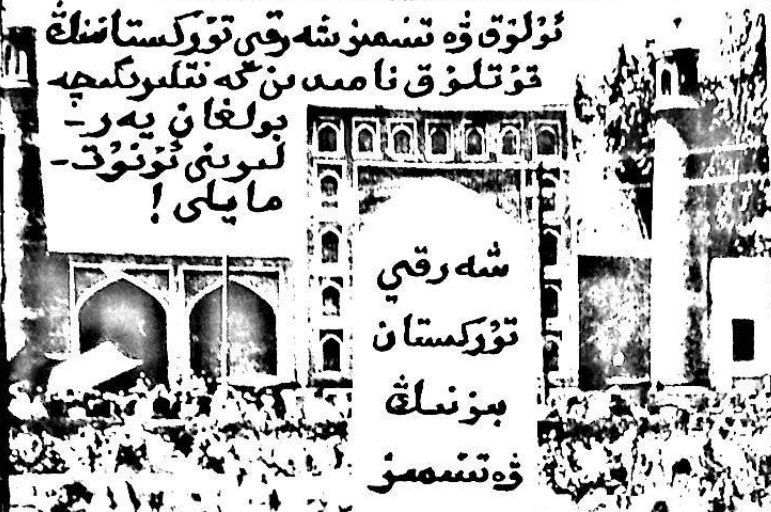 ئۇلۇق ۋە تىنىمىز شەرقى تۈركىستاننىڭ
قۇتلۇق نامىدىن گە نقلىرىگىچە
بولغان يەر-
لىرىنى ئۇنۇتـ-
مايلى!
شەرقىي
تۈركىستان
بىزنىڭ
ۋەتىنىمىز